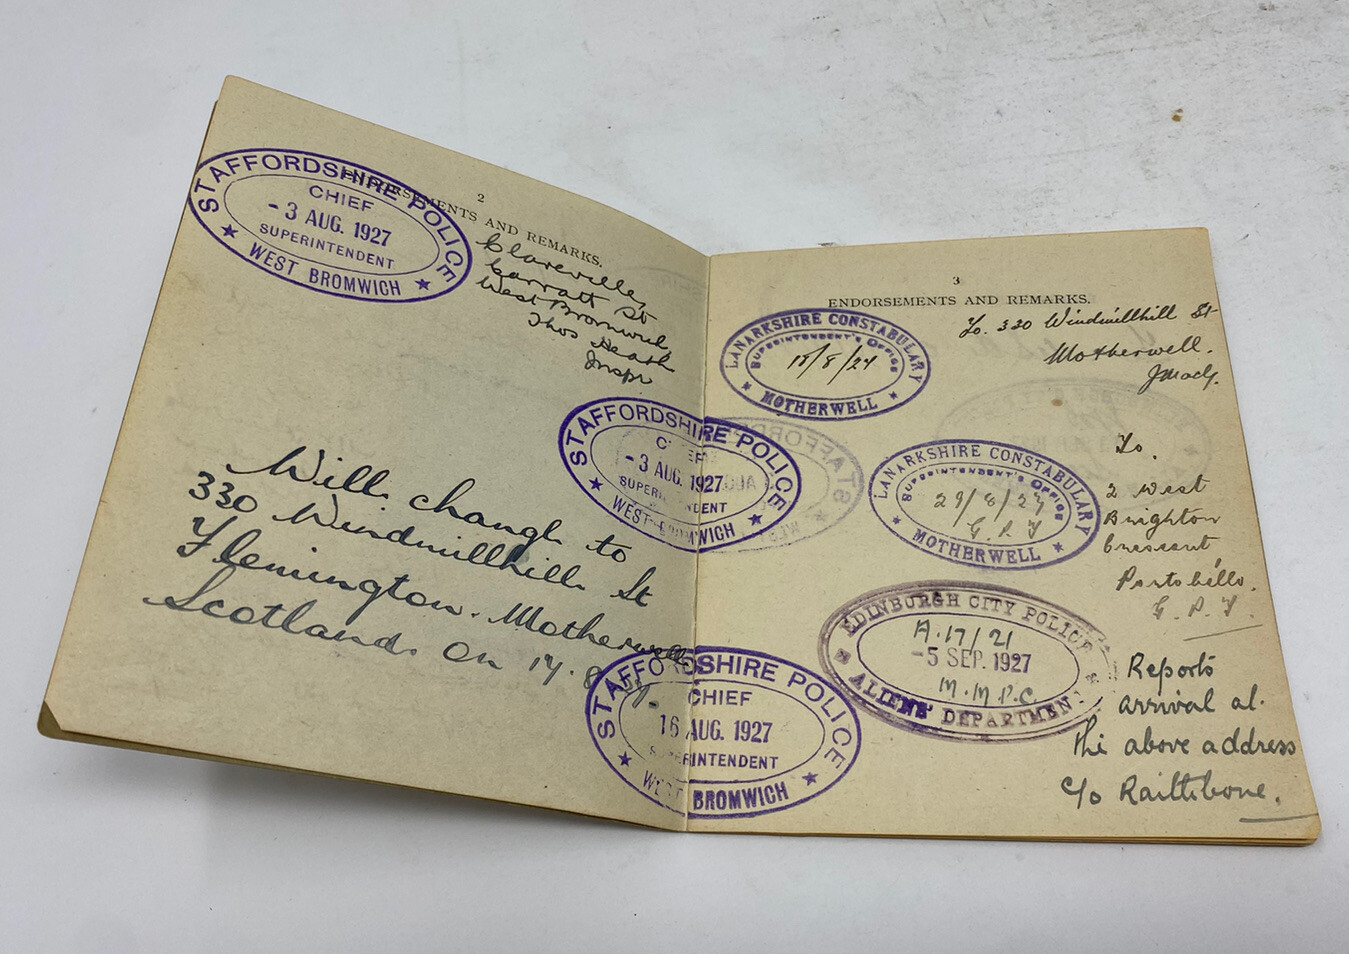 2
ENDORSEMENTS AND REMARKS.
STAFFORDSHIRE POLICE
CHIEF
- 3 AUG. 1927
SUPERINTENDENT
WEST BROMWICH
Clareville,
Garratt St
West Bromwich
Thos Heath
Inspr
STAFFORDSHIRE POLICE
CHIEF
- 3 AUG. 1927
SUPERINTENDENT
WEST BROMWICH
Will change to
330 Windmillhill St
Flemington. Motherwell
Scotland. On 17.8.27.
STAFFORDSHIRE POLICE
CHIEF
16 AUG. 1927
SUPERINTENDENT
WEST BROMWICH
3
ENDORSEMENTS AND REMARKS.
LANARKSHIRE CONSTABULARY
SUPERINTENDENT'S OFFICE
18/8/27
MOTHERWELL
To. 330 Windmillhill St
Motherwell.
LANARKSHIRE CONSTABULARY
SUPERINTENDENT'S OFFICE
29/8/27
MOTHERWELL
To.
2 West
Brighton
Crescent
Portobello.
EDINBURGH CITY POLICE
A.17/21
-5 SEP. 1927
M.M.P.C.
ALIENS' DEPARTMENT
Reports
arrival at
the above address
c/o Raithbone.